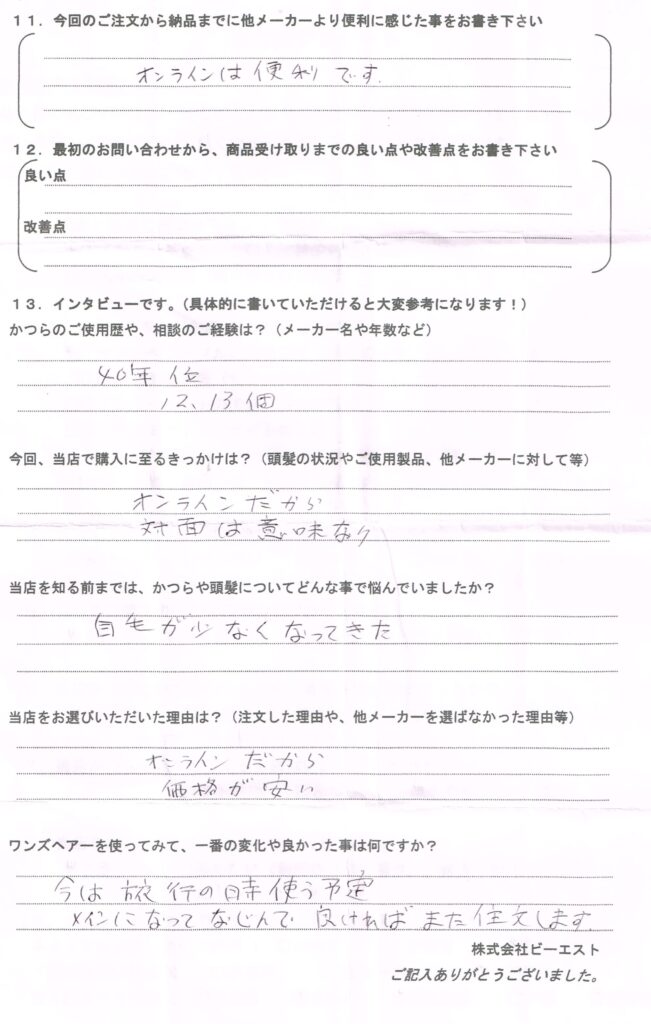 11. 今回のご注文から納品までに他メーカーより便利に感じた事をお書き下さい
オンラインは便利です.
12. 最初のお問い合わせから、商品受け取りまでの良い点や改善点をお書き下さい
良い点
改善点
13. インタビューです。(具体的に書いていただけると大変参考になります！)
かつらのご使用歴や、相談のご経験は？(メーカー名や年数など)
40年位
12、13個
今回、当店で購入に至るきっかけは？(頭髪の状況やご使用製品、他メーカーに対して等)
オンラインだから
対面は意味なり
当店を知る前までは、かつらや頭髪についてどんな事で悩んでいましたか？
自毛が少なくなってきた
当店をお選びいただいた理由は？(注文した理由や、他メーカーを選ばなかった理由等)
オンラインだから
価格が安い
ワンズヘアーを使ってみて、一番の変化や良かった事は何ですか？
今は旅行の時使う予定
メインになってなじんで良ければまた注文します.
株式会社ビーエスト
ご記入ありがとうございました。